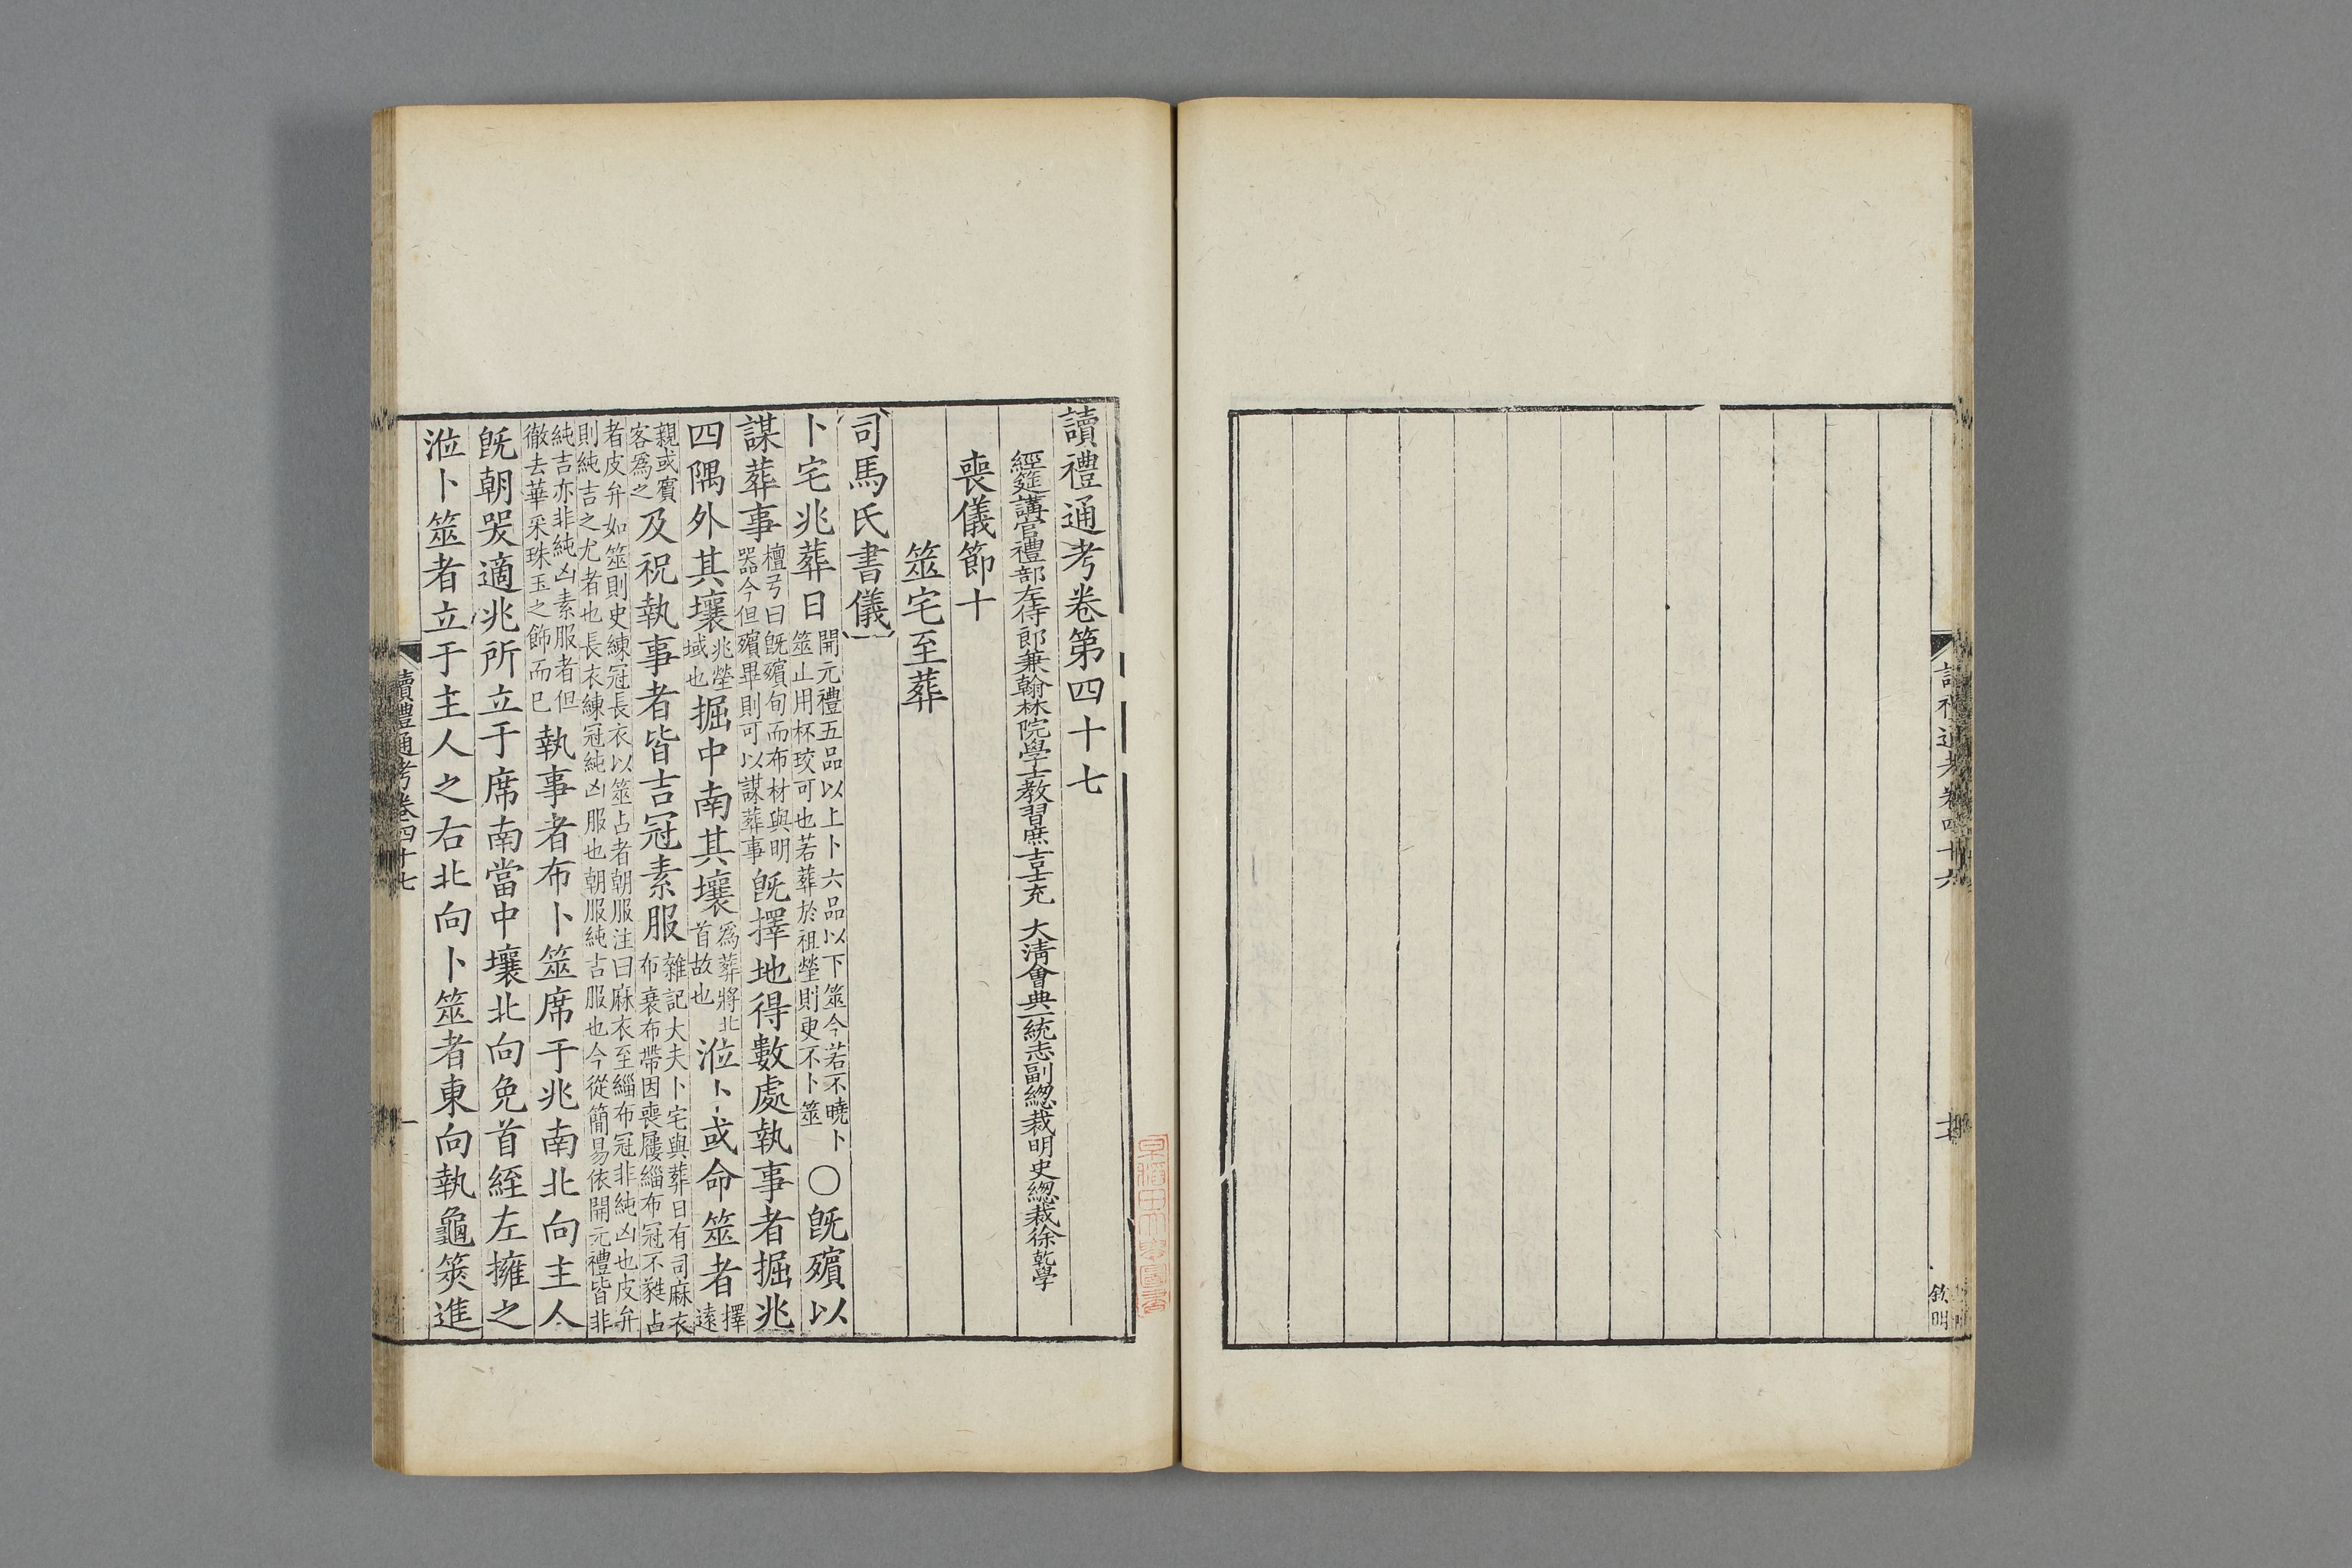 讀禮通考卷第四十七
經筵講官禮部左侍郎兼翰林院學士教習庶吉士充 大淸會典一統志副總裁明史總裁徐乾學
喪儀節十
筮宅至葬
司馬氏書儀
卜宅兆葬日開元禮五品以上卜六品以下筮今若不曉卜筮止用杯珓可也若葬於祖塋則更不卜筮○旣殯以
謀葬事檀弓曰旣殯旬而布材與明器今但殯畢則可以謀葬事旣擇地得數處執事者掘兆
四隅外其壤兆塋域也掘中南其壤爲葬將北首故也涖卜或命筮者擇遠
親或賓客爲之及祝執事者皆吉冠素服雜記大夫卜宅與葬日有司麻衣布衰布帶因喪屨緇布冠不蕤占
者皮弁如筮則史練冠長衣以筮占者朝服注曰麻衣至緇布冠非純凶也皮弁則純吉之尤者也長衣練冠純凶服也朝服純吉服也今從簡易依開元禮皆非
純吉亦非純凶素服者但徹去華采珠玉之飾而已執事者布卜筮席于兆南北向主人
旣朝哭適兆所立于席南當中壤北向免首絰左擁之
涖卜筮者立于主人之右北向卜筮者東向執龜筴進
讀禮通考卷四十七
一